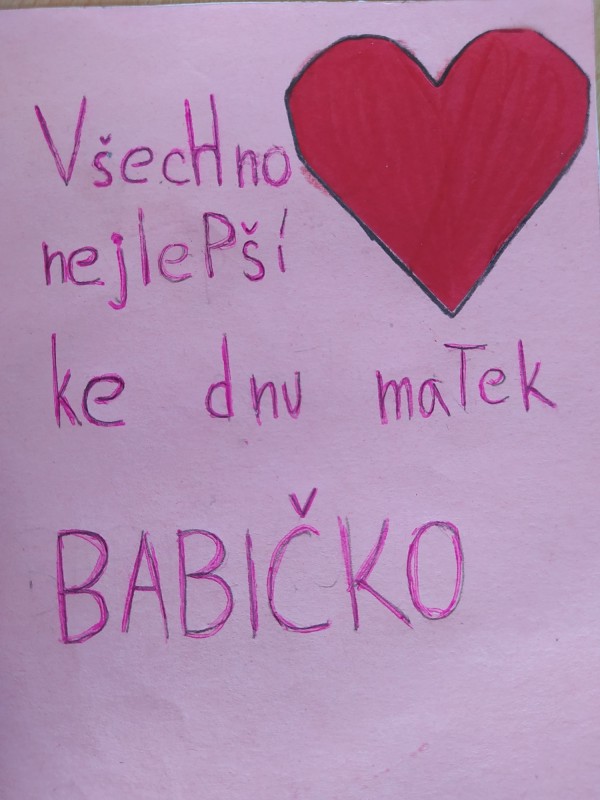 VšecHno
nejlePší
ke dnu maTek
BABIČKO